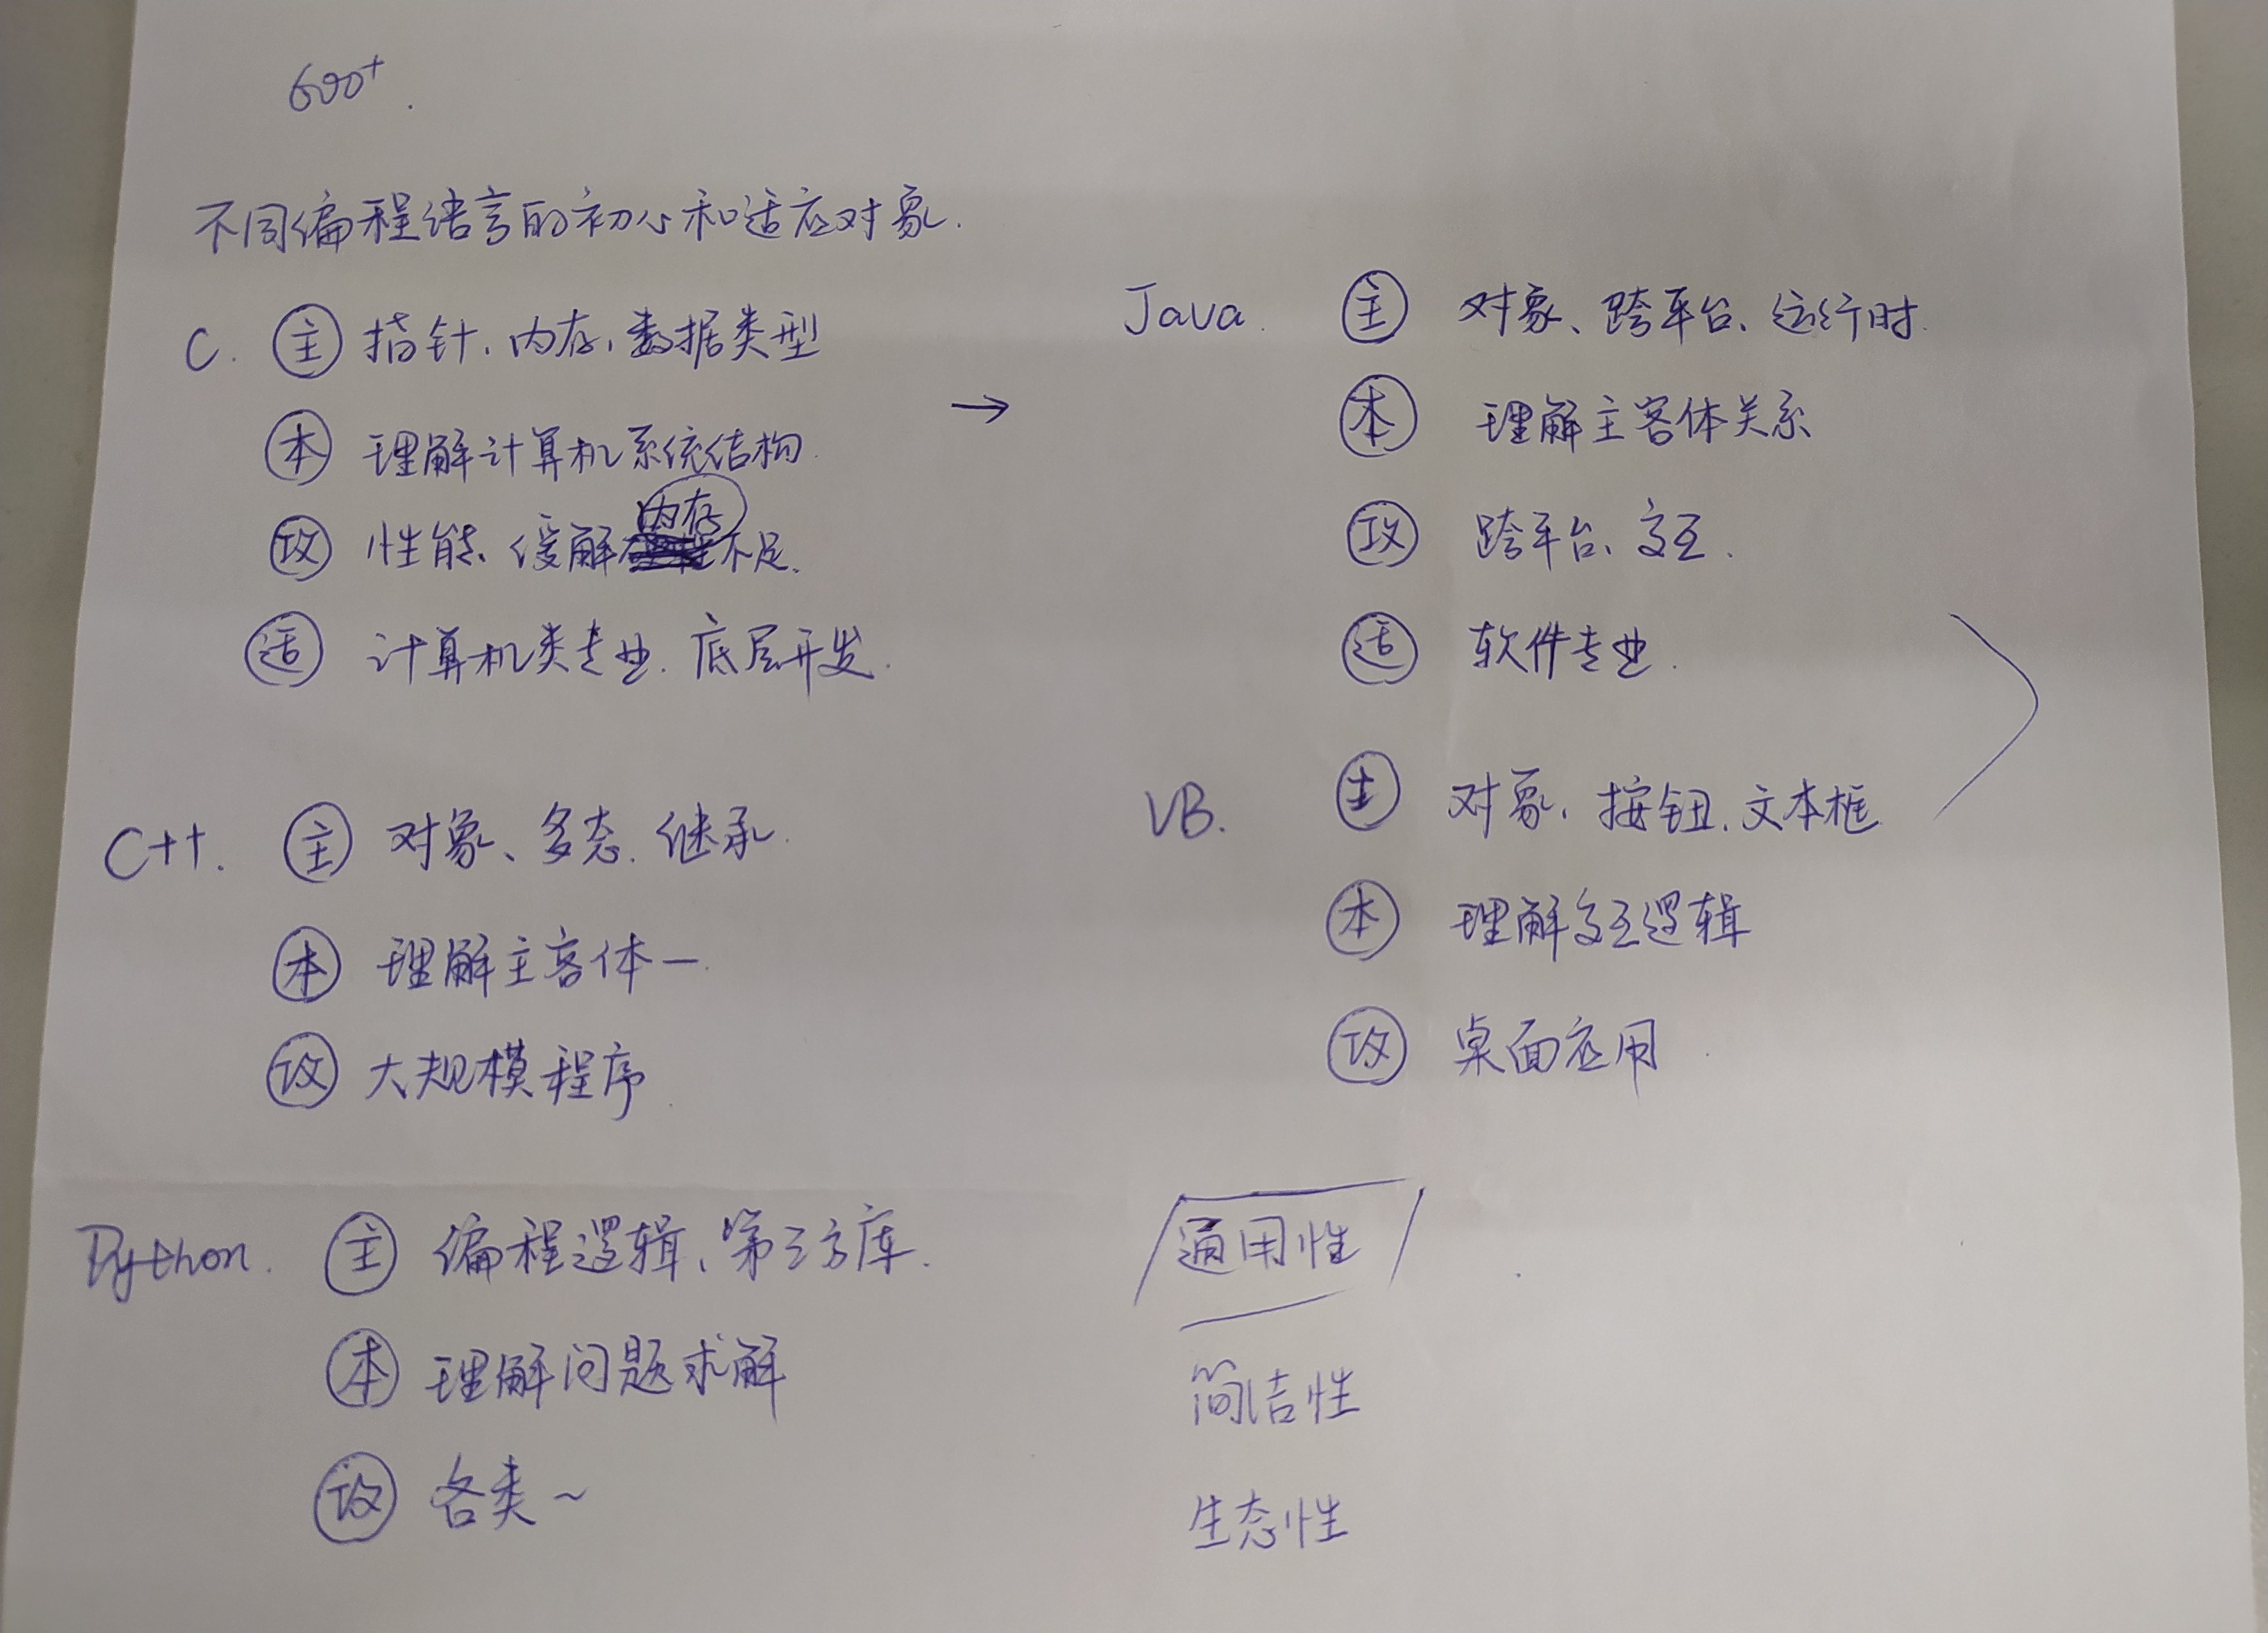 600+.
不同编程语言的初心和适应对象.
C. 主 指针、内存、数据类型
本 理解计算机系统结构
攻 性能、缓解内存不足.
适 计算机类专业. 底层开发.
→
C++. 主 对象、多态. 继承.
本 理解主客体一
攻 大规模程序
Python. 主 编程逻辑、第三方库.
本 理解问题求解
攻 各类~
Java. 主 对象、跨平台、运行时.
本 理解主客体关系
攻 跨平台、交互.
适 软件专业.
VB. 主 对象、按钮、文本框
本 理解交互逻辑
攻 桌面应用
通用性
简洁性
生态性